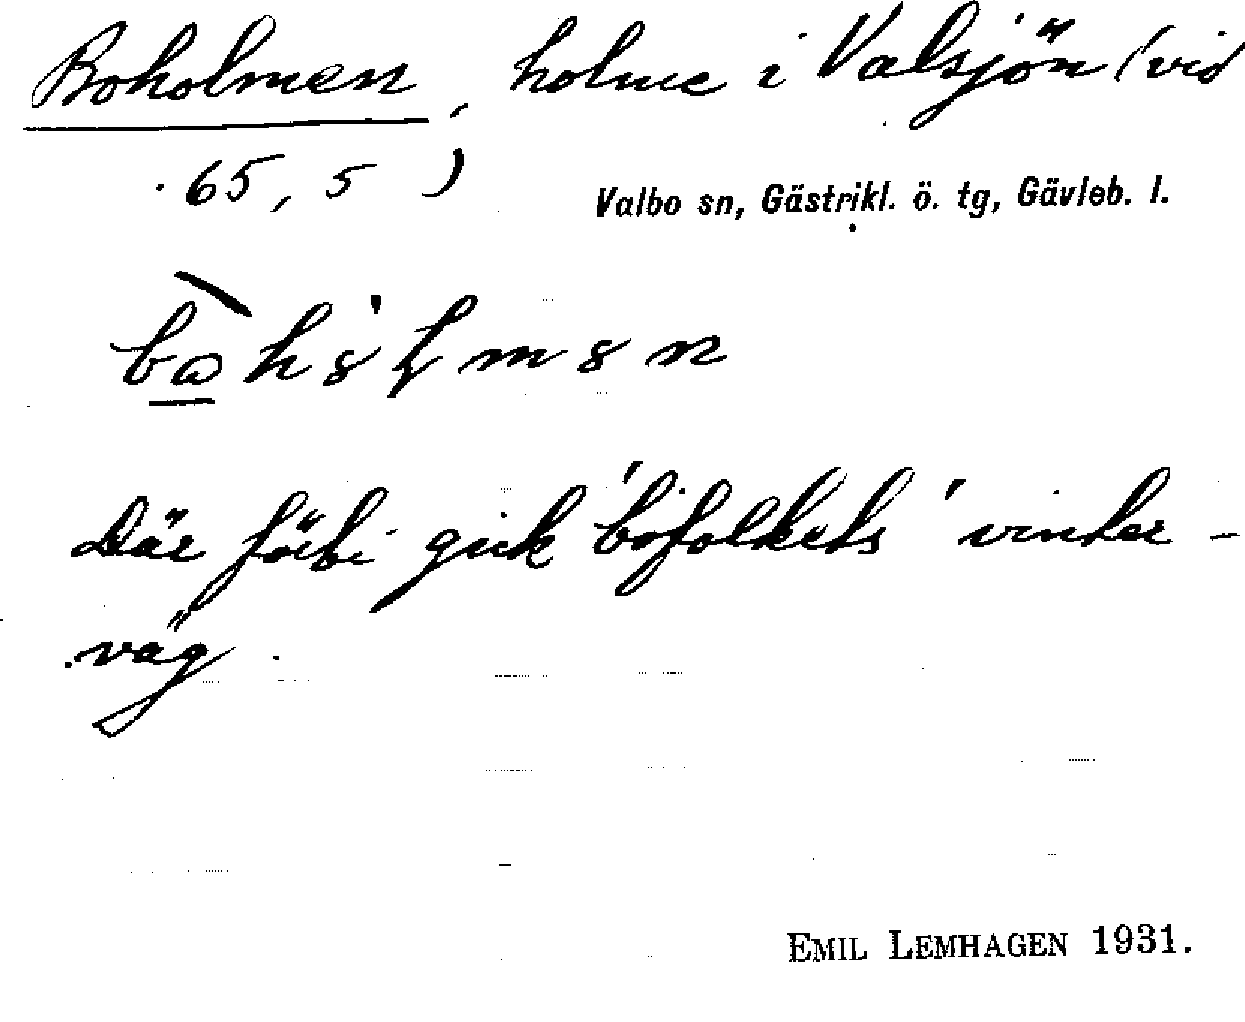 Boholmen, holme i Valsjön (vid
65,5)
Valbo sn, Gästrikl. ö. tg, Gävleb. l.
Där förbi gick 'bofolkets' vinter-
väg.
EMIL LEMHAGEN 1931.